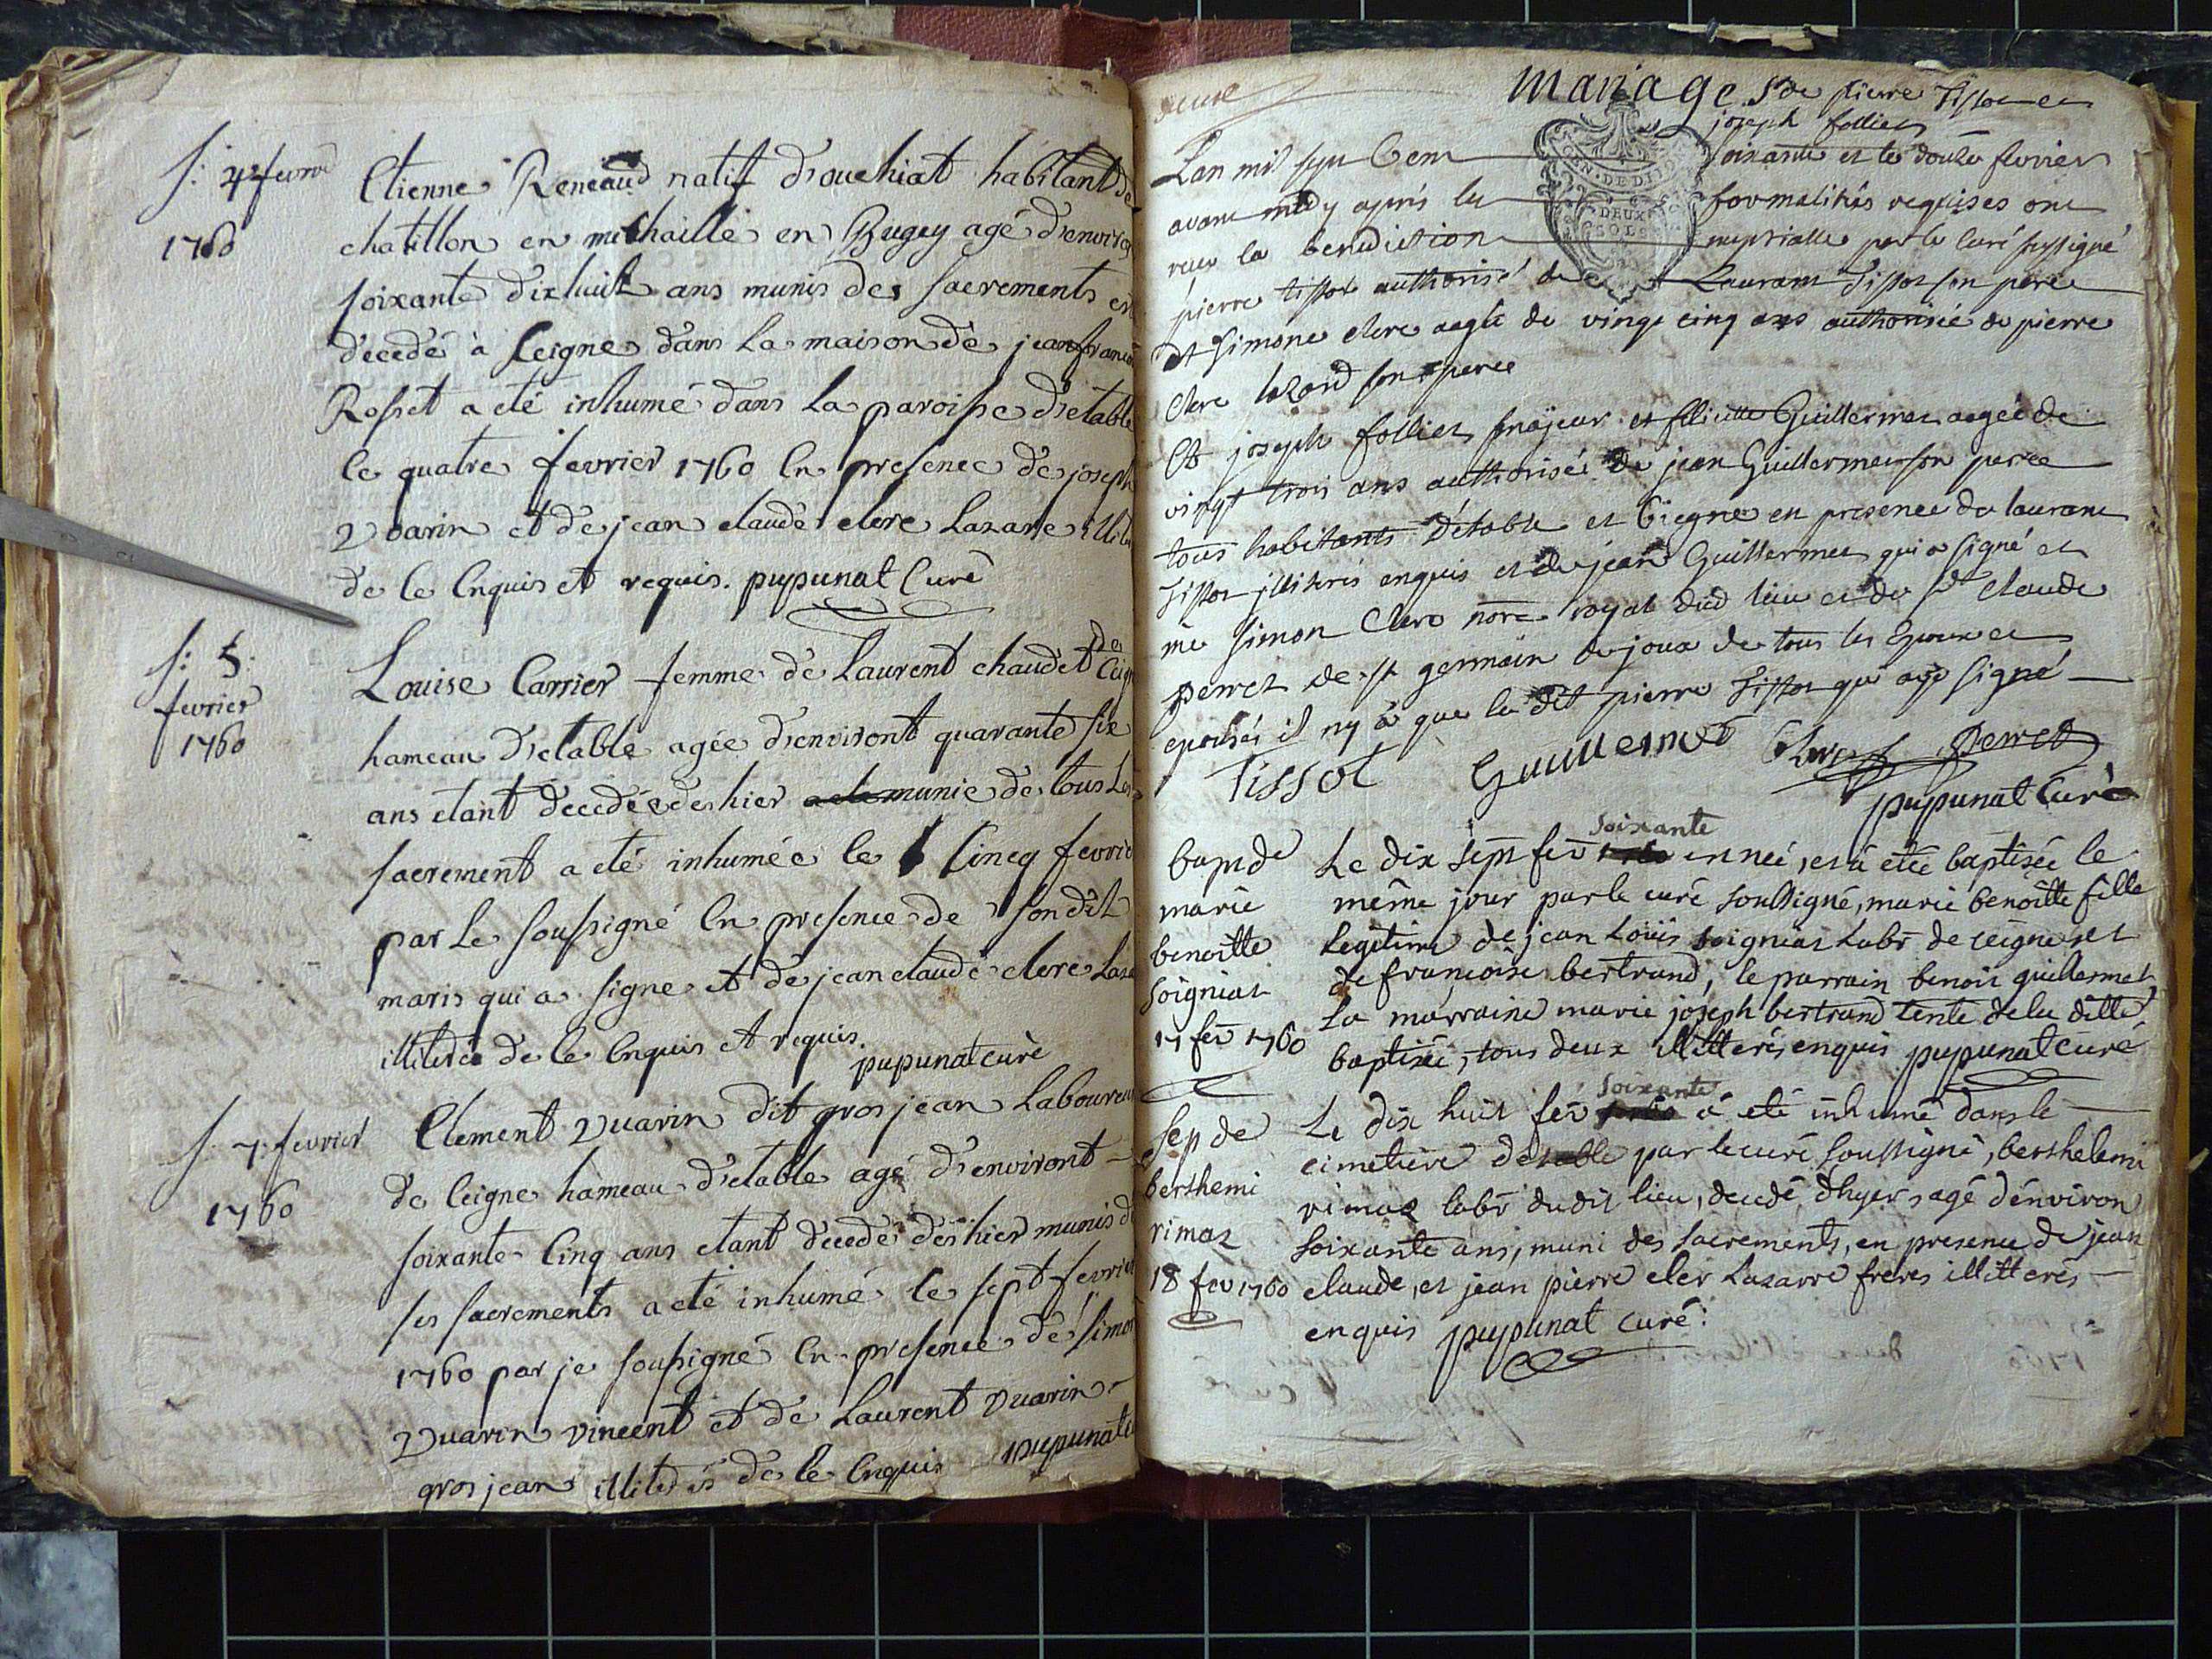 S: 4 fevrie
1760
Etienne Reneaud natif d'ouchiat habitant de
chatillon en michaille en Bugey agé d'environ
soixante dixhuit ans munis des sacrements et
décedé à Ceigne dans la maison de jeanfranco
Rosset a eté inhumé dans la paroisse d'etable
le quatre fevrier 1760 En presence de joseph
Vuarin et de jean claude clere Lazare illite
de ce Enquis et requis. pupunat Curé
S: 5.
fevrier
1760
Louise Carrier femme de Laurent chaudet de Ceign
hameau d'etable agée d'environt quarante six
ans etant decedée des hier munie de tous Les
sacrement a eté inhumée le Cincq fevrie
par Le soussigné En presence de son dit
maris qui a signe et de jean claude clere Laza
illiterée de ce Enquis et requis.
pupunat curé
S: 7 fevrier
1760
Clement Vuarin dit gros jean Laboureu
de Ceigne hameau d'etable agé d'environt
soixante Cinq ans etant decedé des hier munis de
ses sacrements a eté inhumé le sept fevrier
1760 par je soussigné En presence de Simon
Vuarin vincent et de Laurent Vuarin
gros jean illiterés de ce Enquis pupunat c
mariage S de pierre Tissot et
joseph folliet
Lan mil sept Cent soixante et le douze fevrier
GEN. DE DIJON
DEUX SOLS
avant midy apres les formalités requises ont
reçu la benediction nuptialle par le curé soussigné
pierre tissot authorisé de Laurant Tissot son pere
Et Simone clere aagée de vingt cinq ans authorisée de pierre
Clere lazard son pere
Et joseph folliet majeur et Guillermet aagée de
vingt trois ans authorisée de jean Guillermet son pere
tous habitants D'etable et Ciegne en presence de laurant
Tissot illiterés enquis et de jean Guillermet qui a signé et
me simon Clere nore royal dud lieu et de sr claude
perret de st germain de joux de tous les Epoux et
epousés il ny a que le dit pierre Tissot qui aye signé
Tissot Guillermet Clere Perret
pupunat Curé
bap de
marie
benoitte
soigniat
17 fev 1760
soixante
Le dix sept fev est neé, et à etée baptisée le
même jour par le curé soussigné, marie benoitte fille
Legitime de jean Louis soigniat Labr de ceigne et
de francoise bertrand, le parrain benoit guillermet,
La marraine marie joseph bertrand tente de la ditte
baptisée, tous deux illitterés enquis pupunat curé
sep de
berthemi
rimaz
18 fev 1760
soixante
Le dix huit fev à eté inhumé dans le
cimetiere detable par le curé soussigné, berthelemi
rimaz labr dudit lieu, decedé d'hyer, agé d'environ
soixante ans, muni des sacrements, en presence de jean
claude, et jean pierre cler Lazarre freres illitterés
enquis pupunat curé.